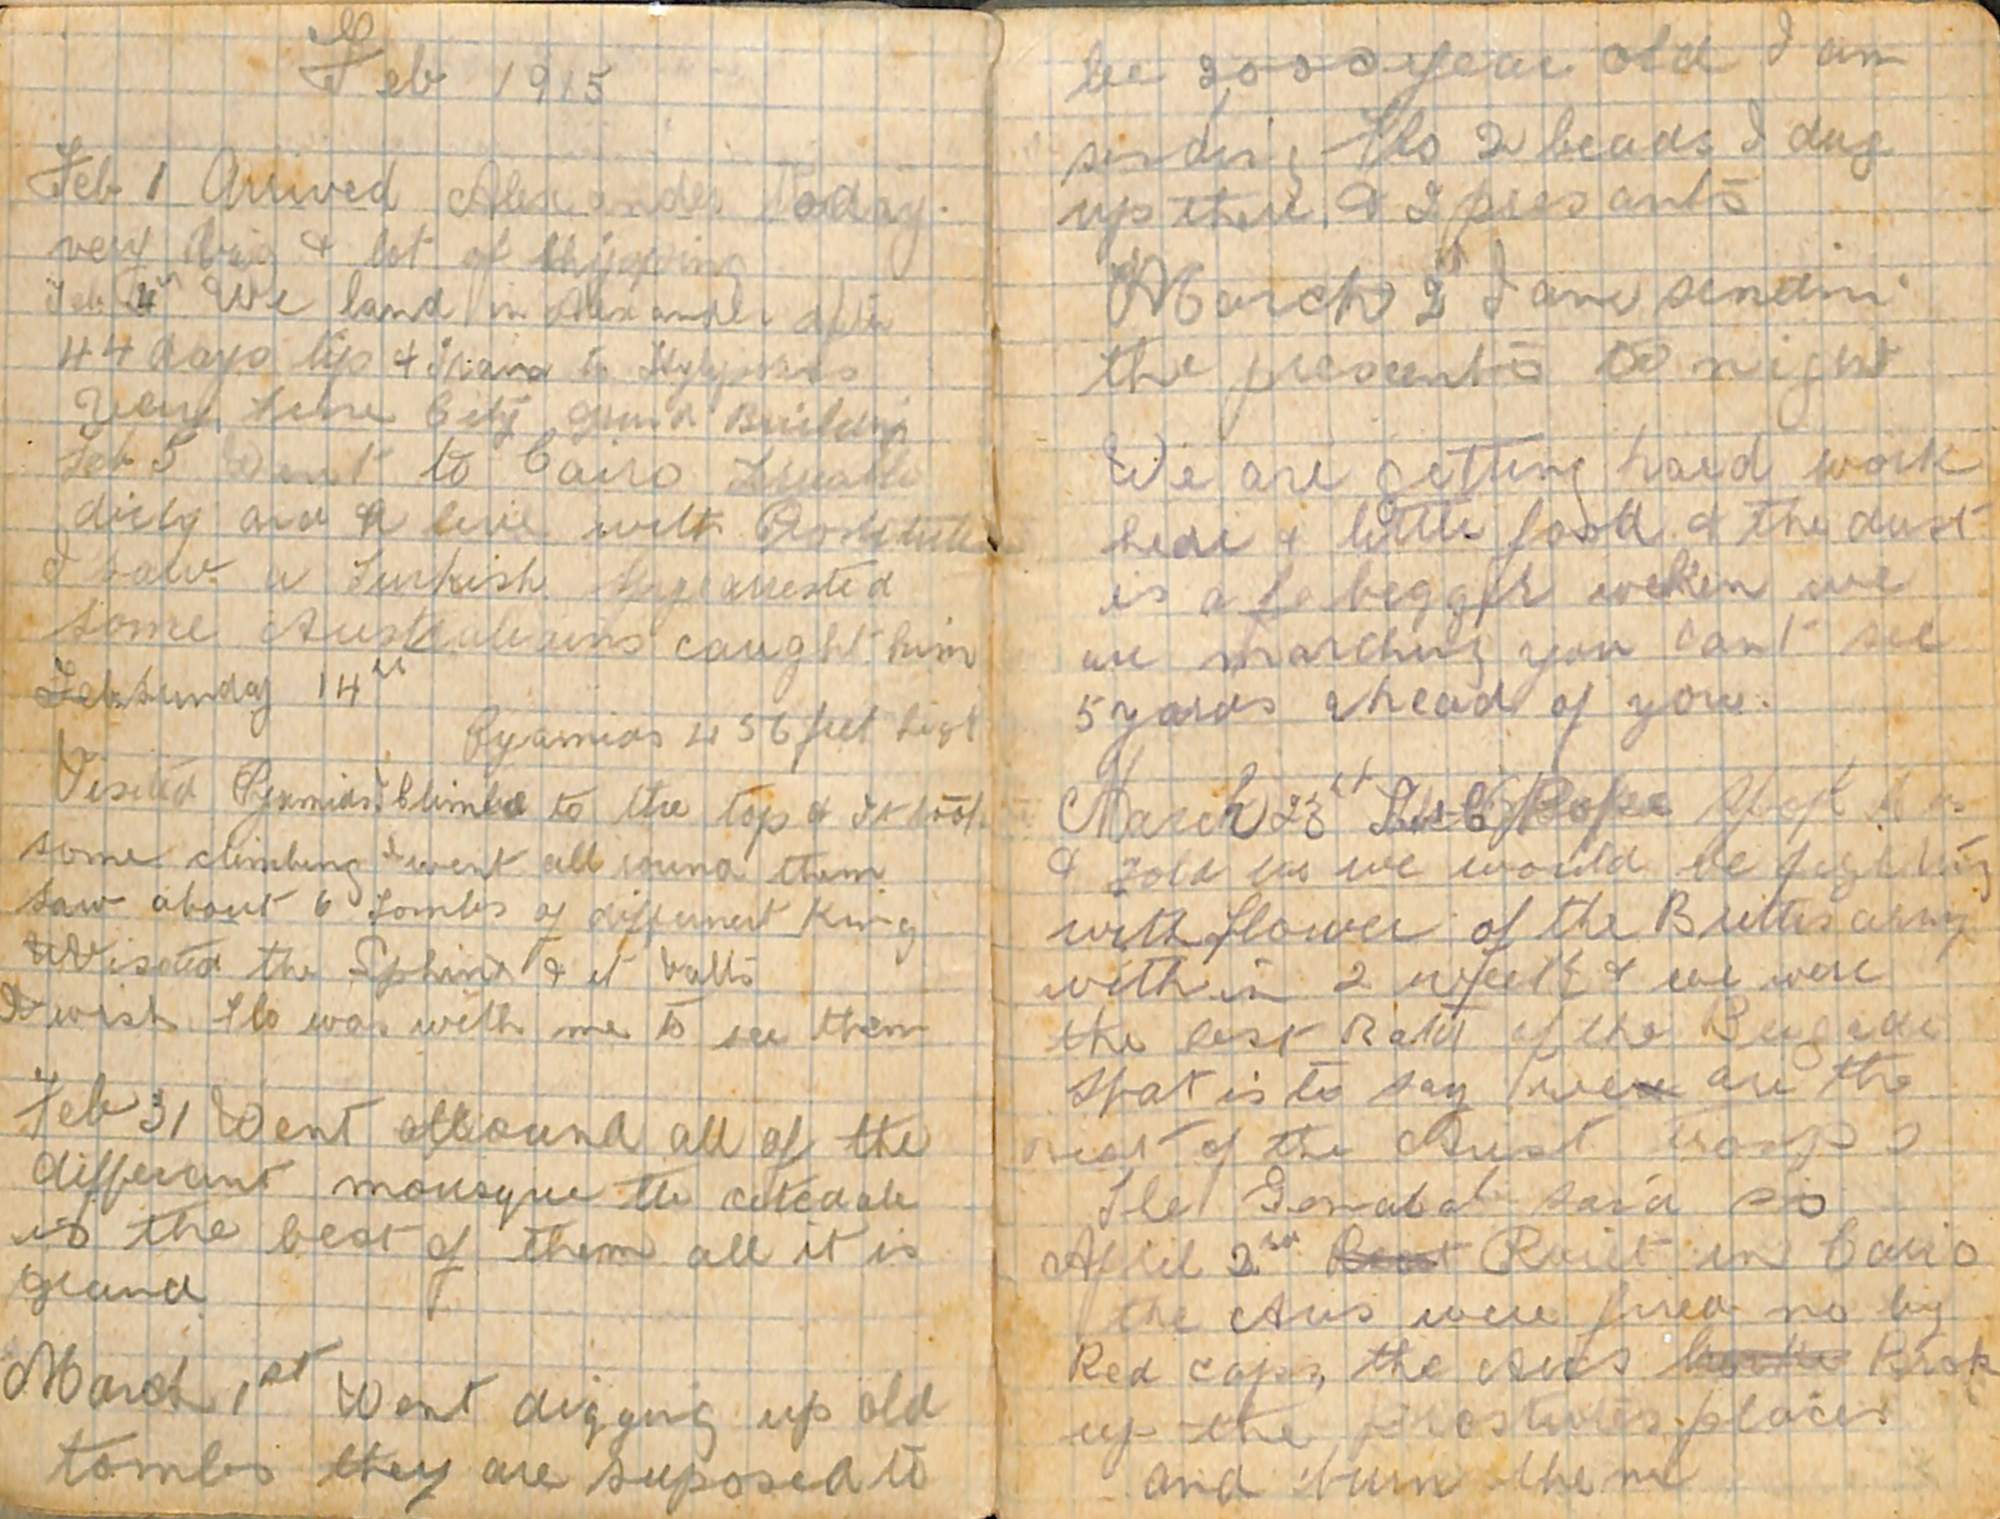 Feb 1915
Feb 1 Arrived Alexander Today.
very big & lot of shipping
Feb 4th We land in Alexander after
44 days tip & Trand to
very fine City grand Building
Feb 5 Went to Cairo
dirty and A live with
I saw a Turkish arrested
some Australians caught him
Feb Sunday 14th
Pyamids 456 feet high
Visited Pyamids I Climbed to the top & It took
some climbing I went all round them
saw about 6 Tombs of differnet King
Visited the Sphinx & it
I wish Flo was with me to see them
Feb 31 Went allround all of the
differant mousque the citedale
is the best of them all it is
grand
March 1st Went digging up old
tombs they are suposed to
be 3000 year old I am
sending Flo 2 beads I dug
up there, & 2 presants
March 2 I am sendin
the presents to night
We are getting hard work
here & little food & the dust
is a begger when we
are marching you cant see
5 yards ahead of you.
March 23 Pope
& Told us we would be fighting
with flower of the army
within 2 week & we were
the of the Brigade
that is to say we are the
of the Aust troops
The said so
April 2nd Roiet in Cario
the Aus were fired no by
Red caps, the Aus Brok
up the places
and burn them